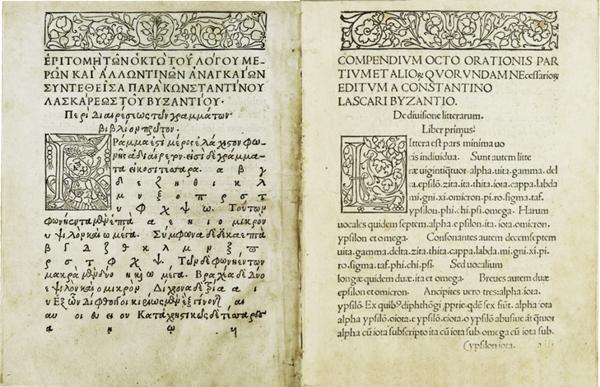 ΕΠΙΤΟΜΗ ΤΩΝ ΟΚΤΩ ΤΟΥ ΛΟΓΟΥ ΜΕ
ΡΩΝ ΚΑΙ ΑΛΛΩΝ ΤΙΝΩΝ ΑΝΑΓΚΑΙΩΝ
ΣΥΝΤΕΘΕΙΣΑ ΠΑΡΑ ΚΩΝΣΤΑΝΤΙΝΟΥ
ΛΑΣΚΑΡΕΩΣ ΤΟΥ ΒΥΖΑΝΤΙΟΥ.
Περὶ Διαιρέσεως τῶν γραμμάτων
βιβλίον πρῶτον.
Γράμμα ἐστὶ μέρος ἐλάχιστον φω
νῆς ἀδιαίρετον. εἰσὶ δὲ γράμμα-
τα εἰκοσιτέσσαρα. α β γ
δ ε ζ η θ ι κ λ
μ ν ξ ο π ρ σ τ
υ φ χ ψ ω. Τούτων
φωνήεντα μὲν ἑπτὰ α ε η ι ο μικρὸν
υ ψιλὸν καὶ ω μέγα. Σύμφωνα δὲ δεκαεπτὰ
β γ δ ζ θ κ λ μ ν ξ π
ρ σ τ φ χ ψ. Τῶν δὲ φωνηέντων
μακρὰ μὲν δύο η καὶ ω μέγα. Βραχέα δύο
ε ψιλὸν καὶ ο μικρόν. Δίχρονα δὲ τρία α ι
υ
αι αυ ει ευ οι ου Καταχρηστικῶς δὲ
ᾳ ῳ ῃ
COMPENDIVM OCTO ORATIONIS PAR
TIVM ET ALIOꝜ QVORVNDAM NEcessarioꝝ
EDITVM A CONSTANTINO
LASCARI BYZANTIO.
De diuisione litterarum.
Liber primus:
Littera est pars minima uo
cis indiuidua. Sunt autem litte
ræ uigintiquatuor. alpha. uita. gamma. del
ta. epsilō. zita. ita. thita. iota. cappa. labda
mi. gni. xi. omicron. pi. ro. sigma. taf.
ypsilon. phi. chi. psi. omega. Harum
uocales quidem septem. alpha. epsilon. ita. iota. omicron.
ypsilon et omega. Consonantes autem decemseptem
uita. gamma. delta. zita. thita. cappa. labda. mi. gni. xi. pi.
ro. sigma. taf. phi. chi. psi. Sed uocalium
longæ quidem duæ ita et omega. Breues autem duæ
epsilon et omicron. Ancipites uero tres. alpha. iota.
ypsilō. Ex quibꝰ diphthōgi ,pprie qdē sex fiūt. alpha iota
alpha ypsilō. oiota. e ypsilō. o iota. o ypsilō abusiue at
alpha cū iota subscripto ita cū iota sub. omega cū iota sub.
(ypsilon iota.